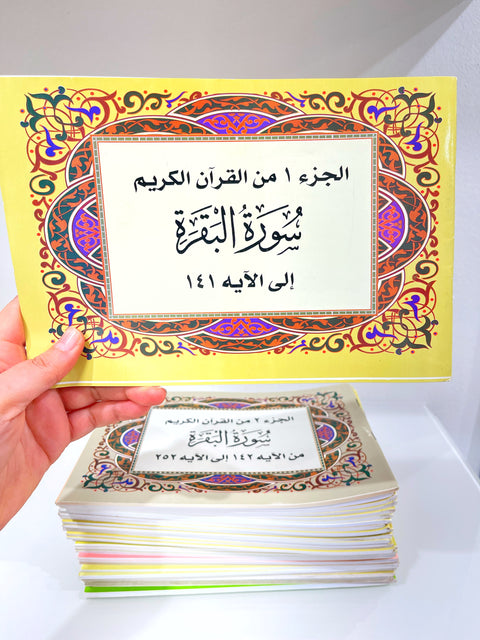 الجزء ١ من القرآن الكريم
سُورَةُ البَقَرَةِ
إلى الآيه ١٤١
الجزء ٢ من القرآن الكريم
سُورَةُ البَقَرَةِ
من الآيه ١٤٢ إلى الآيه ٢٥٢